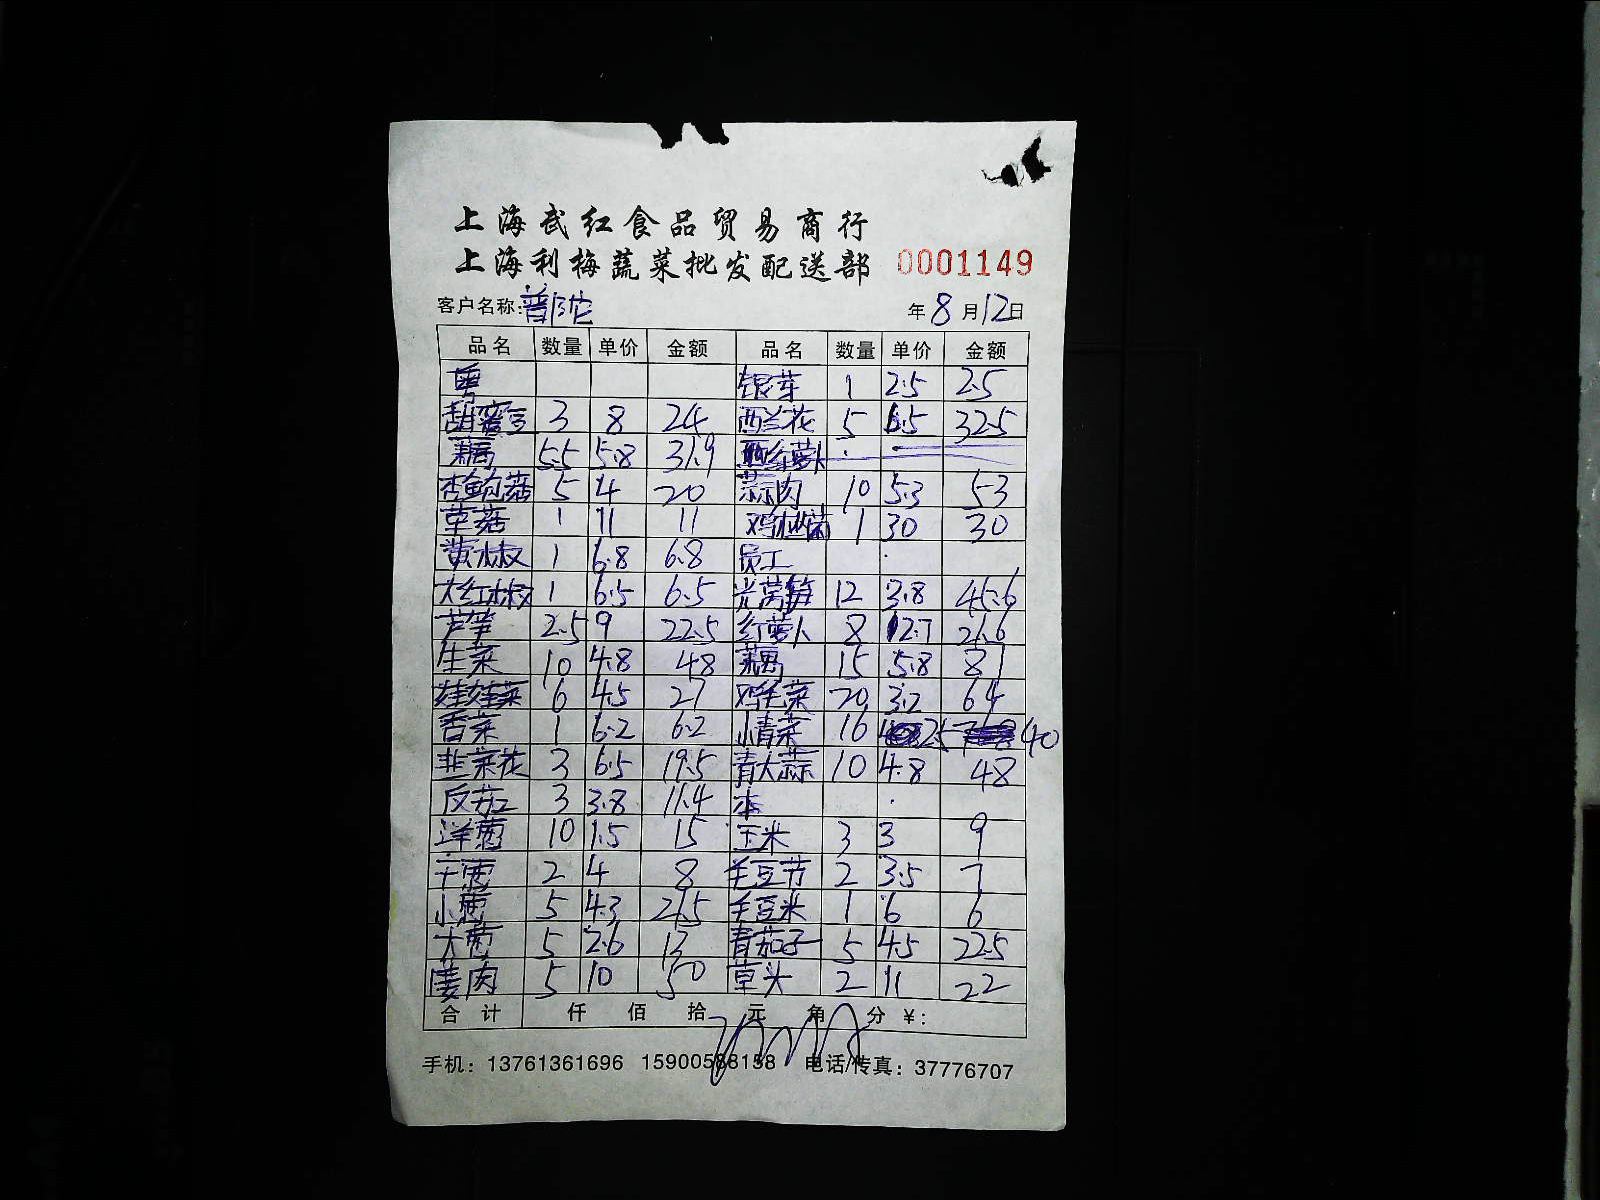 上海武红食品贸易商行
上海利梅蔬菜批发配送部 0001149
客户名称:普陀 年8月12日
品名 数量 单价 金额 品名 数量 单价 金额
粤 银芽 1 2.5 2.5
甜蜜豆 3 8 24 西兰花 5 6.5 32.5
藕 5.5 5.8 31.9
杏鲍菇 5 4 20 蒜肉 10 5.3 53
草菇 1 11 11 鸡枞菌 1 30 30
黄椒 1 6.8 6.8 员工
大红椒 1 6.5 6.5 光莴笋 12 3.8 45.6
芦笋 2.5 9 22.5 红萝卜 8 2.7 21.6
生菜 10 4.8 48 藕 15 5.8 81
娃娃菜 6 4.5 27 鸡毛菜 20 3.2 64
香菜 1 6.2 6.2 小青菜 16 2.5 40
韭菜花 3 6.5 19.5 青大蒜 10 4.8 48
反茄 3 3.8 11.4 本
洋葱 10 1.5 15 玉米 3 3 9
干葱 2 4 8 毛豆节 2 3.5 7
小葱 5 4.3 21.5 毛豆米 1 6 6
大葱 5 2.6 13 青茄子 5 4.5 22.5
姜肉 5 10 50 草头 2 11 22
合计 仟 佰 拾 元 角 分 ¥:
手机: 13761361696 15900588158 电话/传真: 37776707